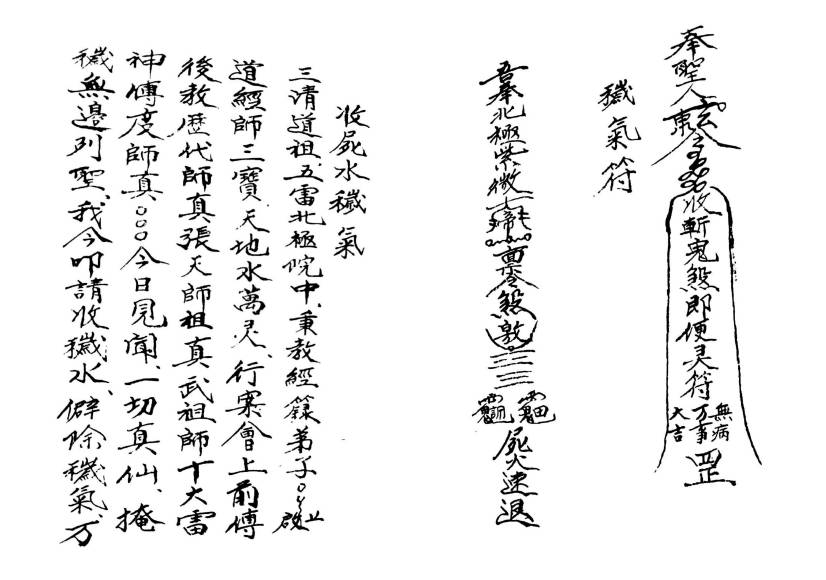 奉聖人敕令收斬鬼煞即便灵符
無病
万事
大吉
罡
穢氣符
吾奉北極紫微大帝
煞敕
三三
屍火速退
收屍水穢氣
三清道祖、五雷北極院中、秉教經籙弟子○○上啟
道經師三寶、天地水萬灵、行案會上前傳
後教歷代師真張天師祖真武祖師十大雷
神傳度師真○○○今日見聞、一切真仙、掩
穢無邊列聖、我今叩請收穢水、僻除穢氣、万